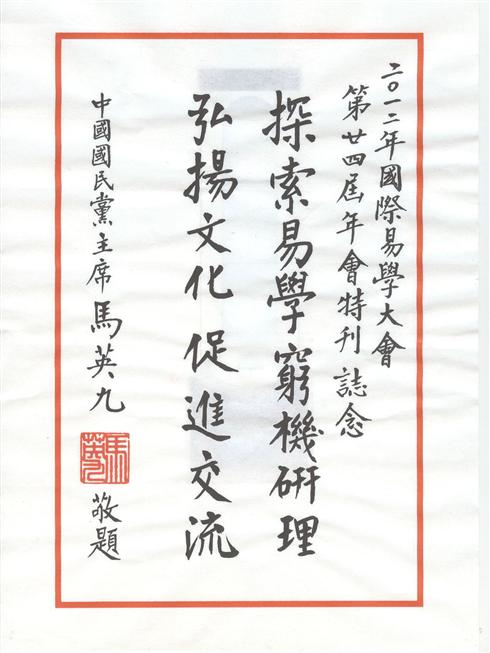 二〇一二年國際易學大會
第廿四屆年會特刊 誌念
探索易學窮機研理
弘揚文化促進交流
中國國民黨主席馬英九 敬題
馬英九